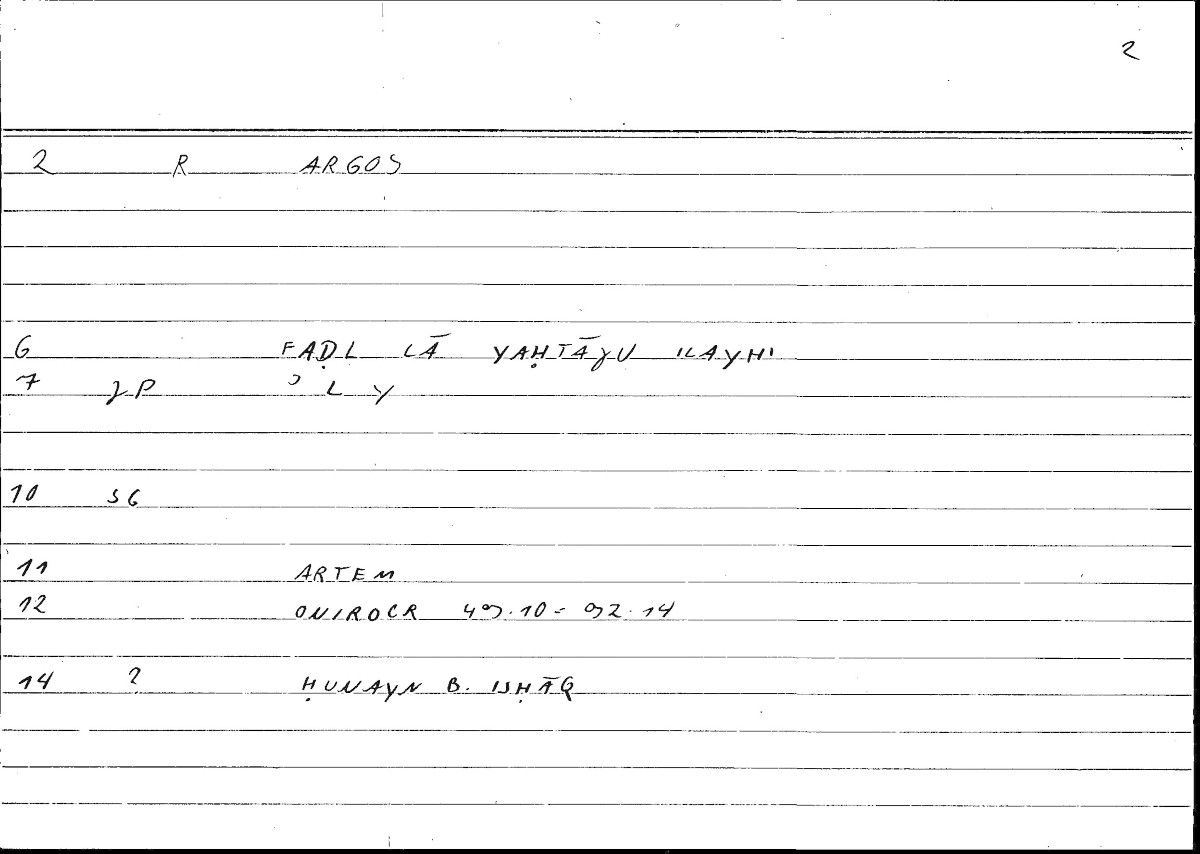 2
2 R ARGOS
6 FAḌL LĀ YAḤTĀJU ILAYHI
7 JP ʾ L Y
10 SG
11 ARTEM
12 ONIROCR 49.10 - 92.14
14 ? ḤUNAYN B. ISḤĀQ